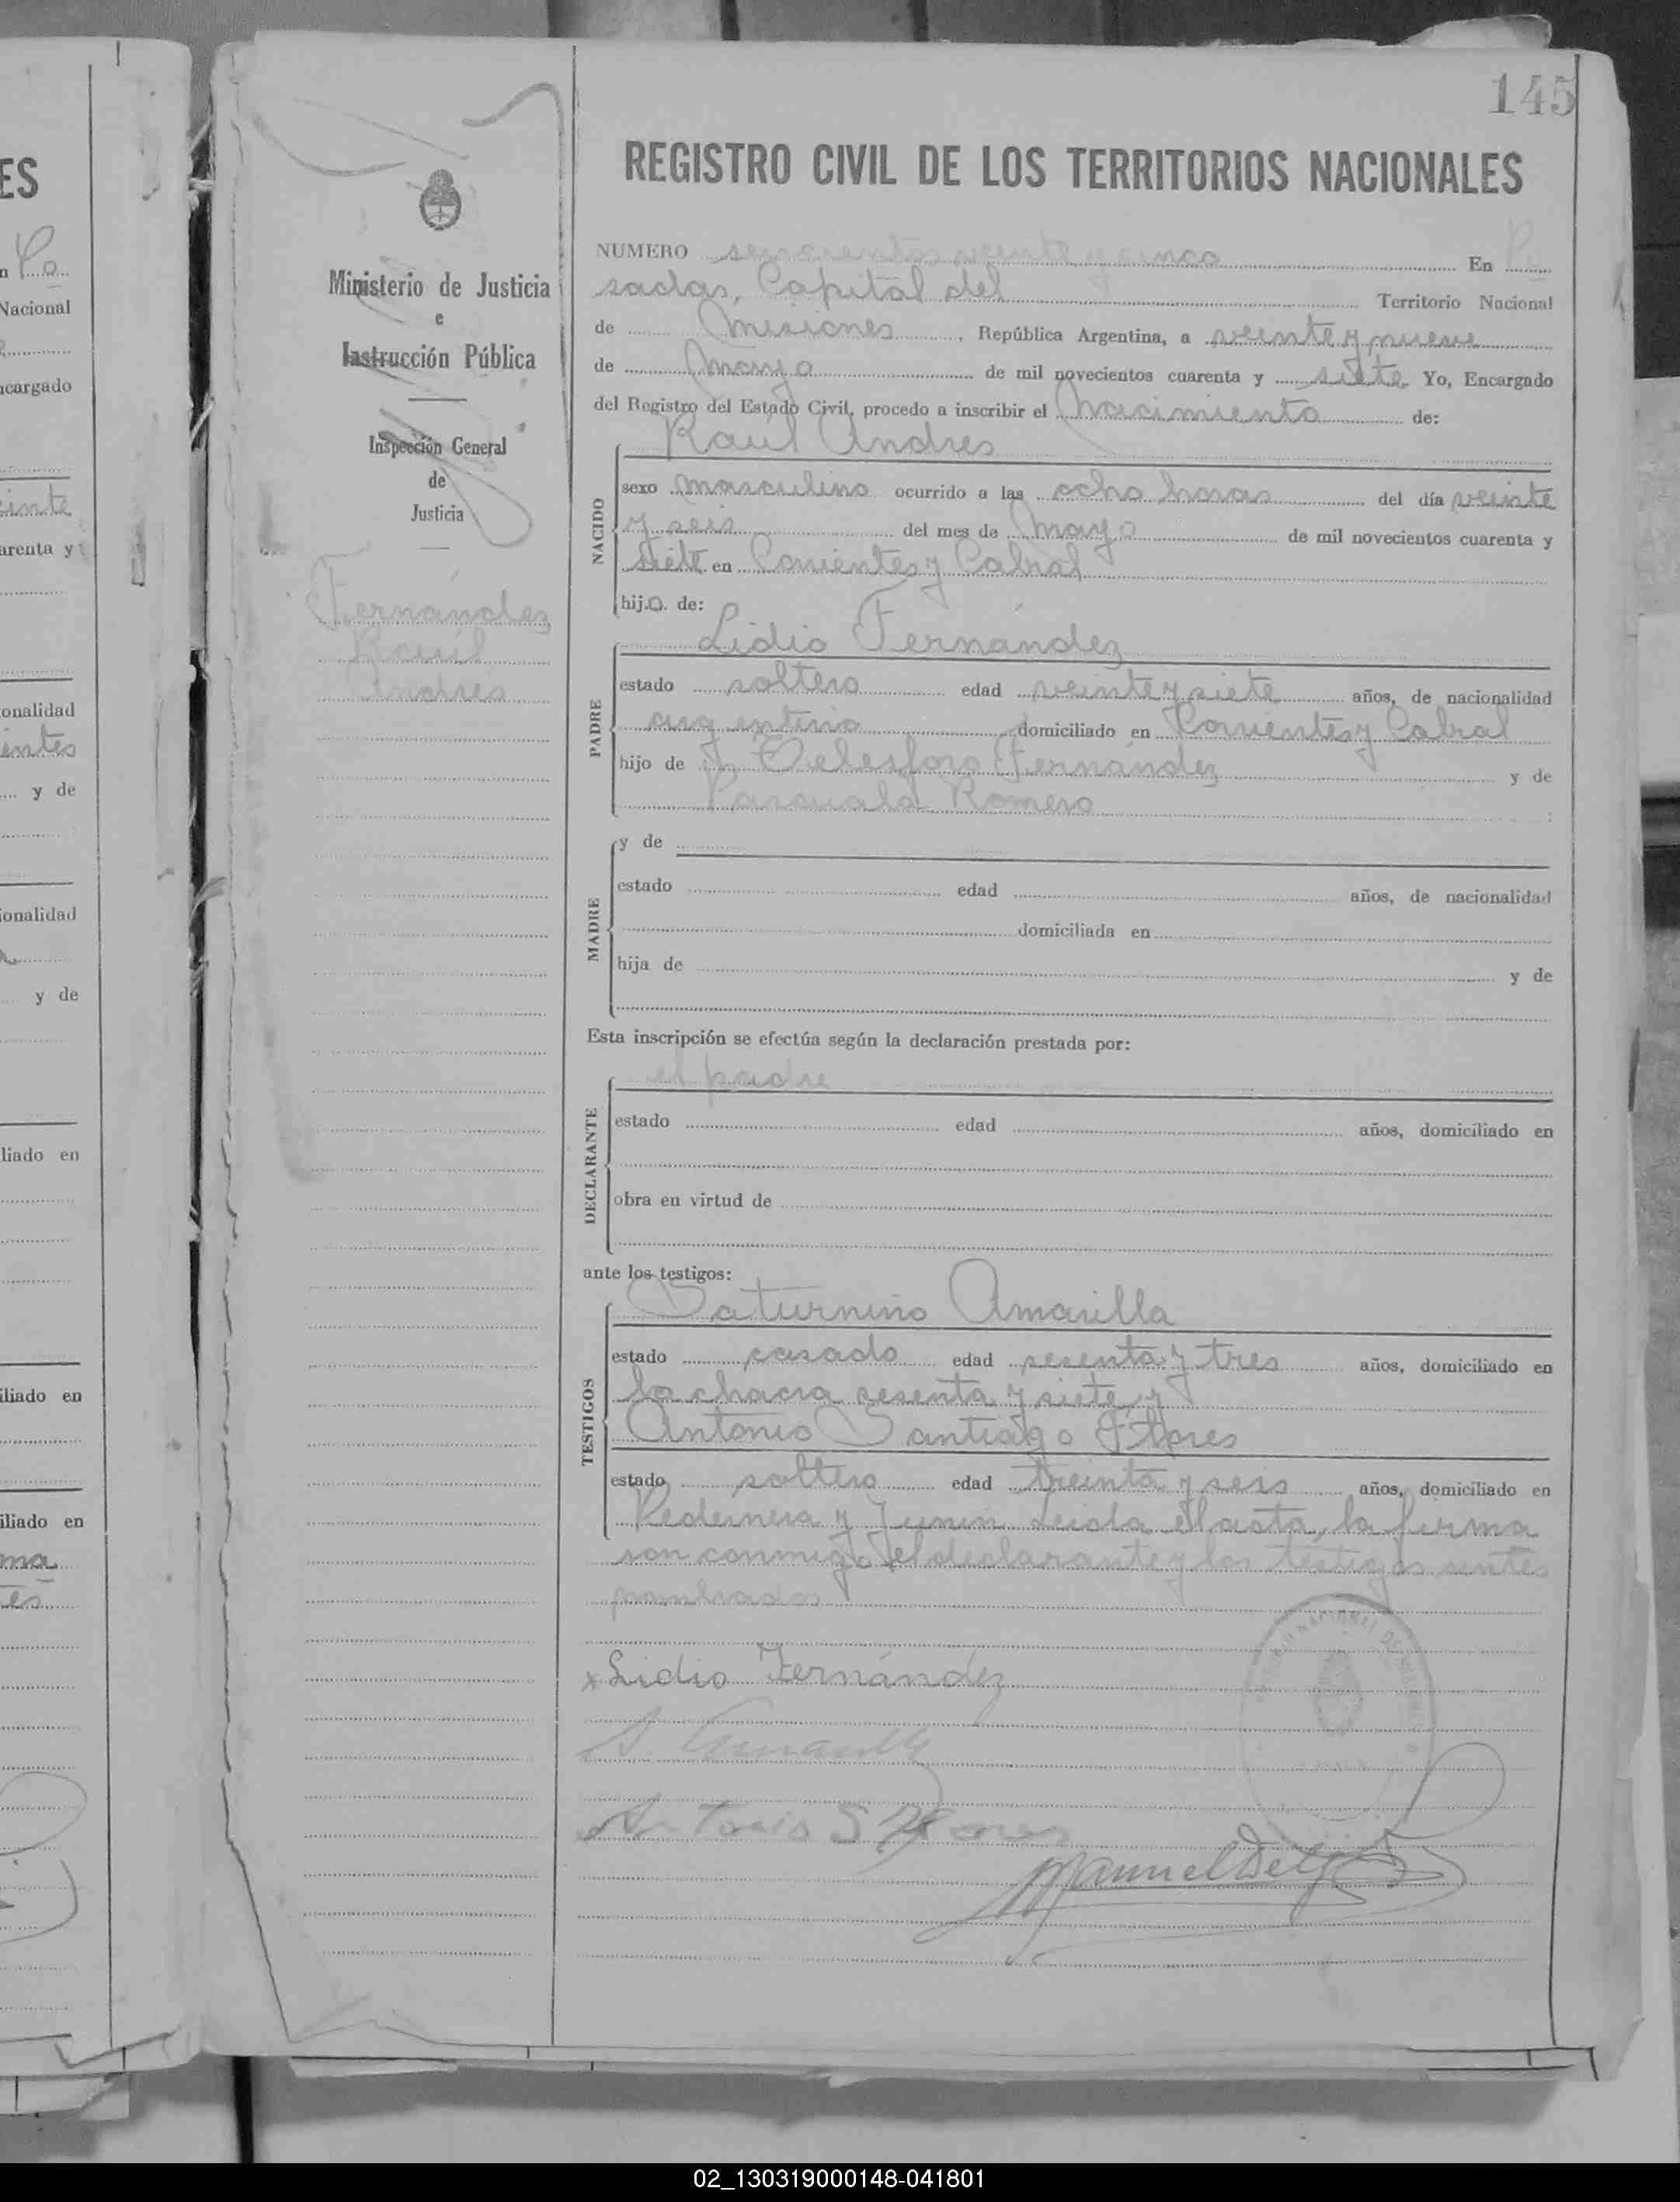 145
ES
REGISTRO CIVIL DE LOS TERRITORIOS NACIONALES
Ministerio de Justicia
e
Instrucción Pública
Inspección General
de
Justicia
Fernández
Raúl
Andres
NUMERO seiscientos veinte y cinco En Po
sadas, Capital del Territorio Nacional
de Misiones, República Argentina, a veinte y nueve
de Mayo de mil novecientos cuarenta y siete Yo, Encargado
del Registro del Estado Civil, procedo a inscribir el nacimiento de:
Raúl Andres
NACIDO
sexo masculino ocurrido a las ocho horas del día veinte
y seis del mes de Mayo de mil novecientos cuarenta y
siete en Corrientes y Cabral
hijo de:
Lidio Fernández
PADRE
estado soltero edad veinte y siete años, de nacionalidad
argentino domiciliado en Corrientes y Cabral
hijo de Telesforo Fernández y de
Pascuala Romero
MADRE
y de
estado edad años, de nacionalidad
domiciliada en
hija de y de
Esta inscripción se efectúa según la declaración prestada por:
el padre
DECLARANTE
estado edad años, domiciliado en
obra en virtud de
ante los testigos:
Saturnino Amarilla
TESTIGOS
estado casado edad sesenta y tres años, domiciliado en
la chacra sesenta y siete y
Antonio Santiago Flores
estado soltero edad treinta y seis años, domiciliado en
Pedernera y Junin Leida el acta, la firma
son conmigo el declarante y los testigos antes
nombrados
x Lidio Fernández
S. Amarilla
Antonio S Flores
Manuel
02_130319000148-041801